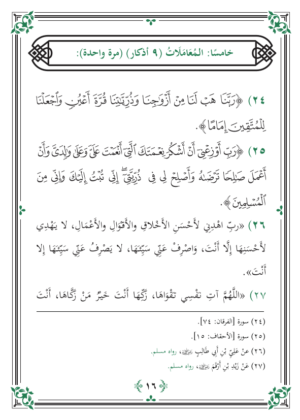 خامسًا: المُعَامَلَاتُ (٩ أذكار) (مرة واحدة):
(٢٤) ﴿رَبَّنَا هَبْ لَنَا مِنْ أَزْوَٰجِنَا وَذُرِّيَّٰتِنَا قُرَّةَ أَعْيُنٍ وَٱجْعَلْنَا
لِلْمُتَّقِينَ إِمَامًا﴾.
(٢٥) ﴿رَبِّ أَوْزِعْنِىٓ أَنْ أَشْكُرَ نِعْمَتَكَ ٱلَّتِىٓ أَنْعَمْتَ عَلَىَّ وَعَلَىٰ وَٰلِدَىَّ وَأَنْ
أَعْمَلَ صَٰلِحًا تَرْضَىٰهُ وَأَصْلِحْ لِى فِى ذُرِّيَّتِىٓ ۖ إِنِّى تُبْتُ إِلَيْكَ وَإِنِّى مِنَ
ٱلْمُسْلِمِينَ﴾.
(٢٦) «ربِّ اهْدِنِي لِأَحْسَنِ الْأَخْلَاقِ وَالْأَقْوَالِ وَالْأَعْمَالِ، لا يَهْدِي
لِأَحْسَنِهَا إِلَّا أَنْتَ، وَاصْرِفْ عَنِّي سَيِّئَهَا، لَا يَصْرِفُ عَنِّي سَيِّئَهَا إِلا
أَنْتَ».
(٢٧) «اللَّهُمَّ آتِ نَفْسِي تَقْوَاهَا، زَكِّهَا أَنْتَ خَيْرُ مَنْ زَكَّاهَا، أَنْتَ
(٢٤) سورة [الفرقان: ٧٤].
(٢٥) سورة [الأحقاف: ١٥].
(٢٦) عنْ عَلِيِّ بْنِ أَبِي طَالِبٍ، رواه مسلم.
(٢٧) عَنْ زَيْدِ بْنِ أَرْقَمَ، رواه مسلم.
١٦